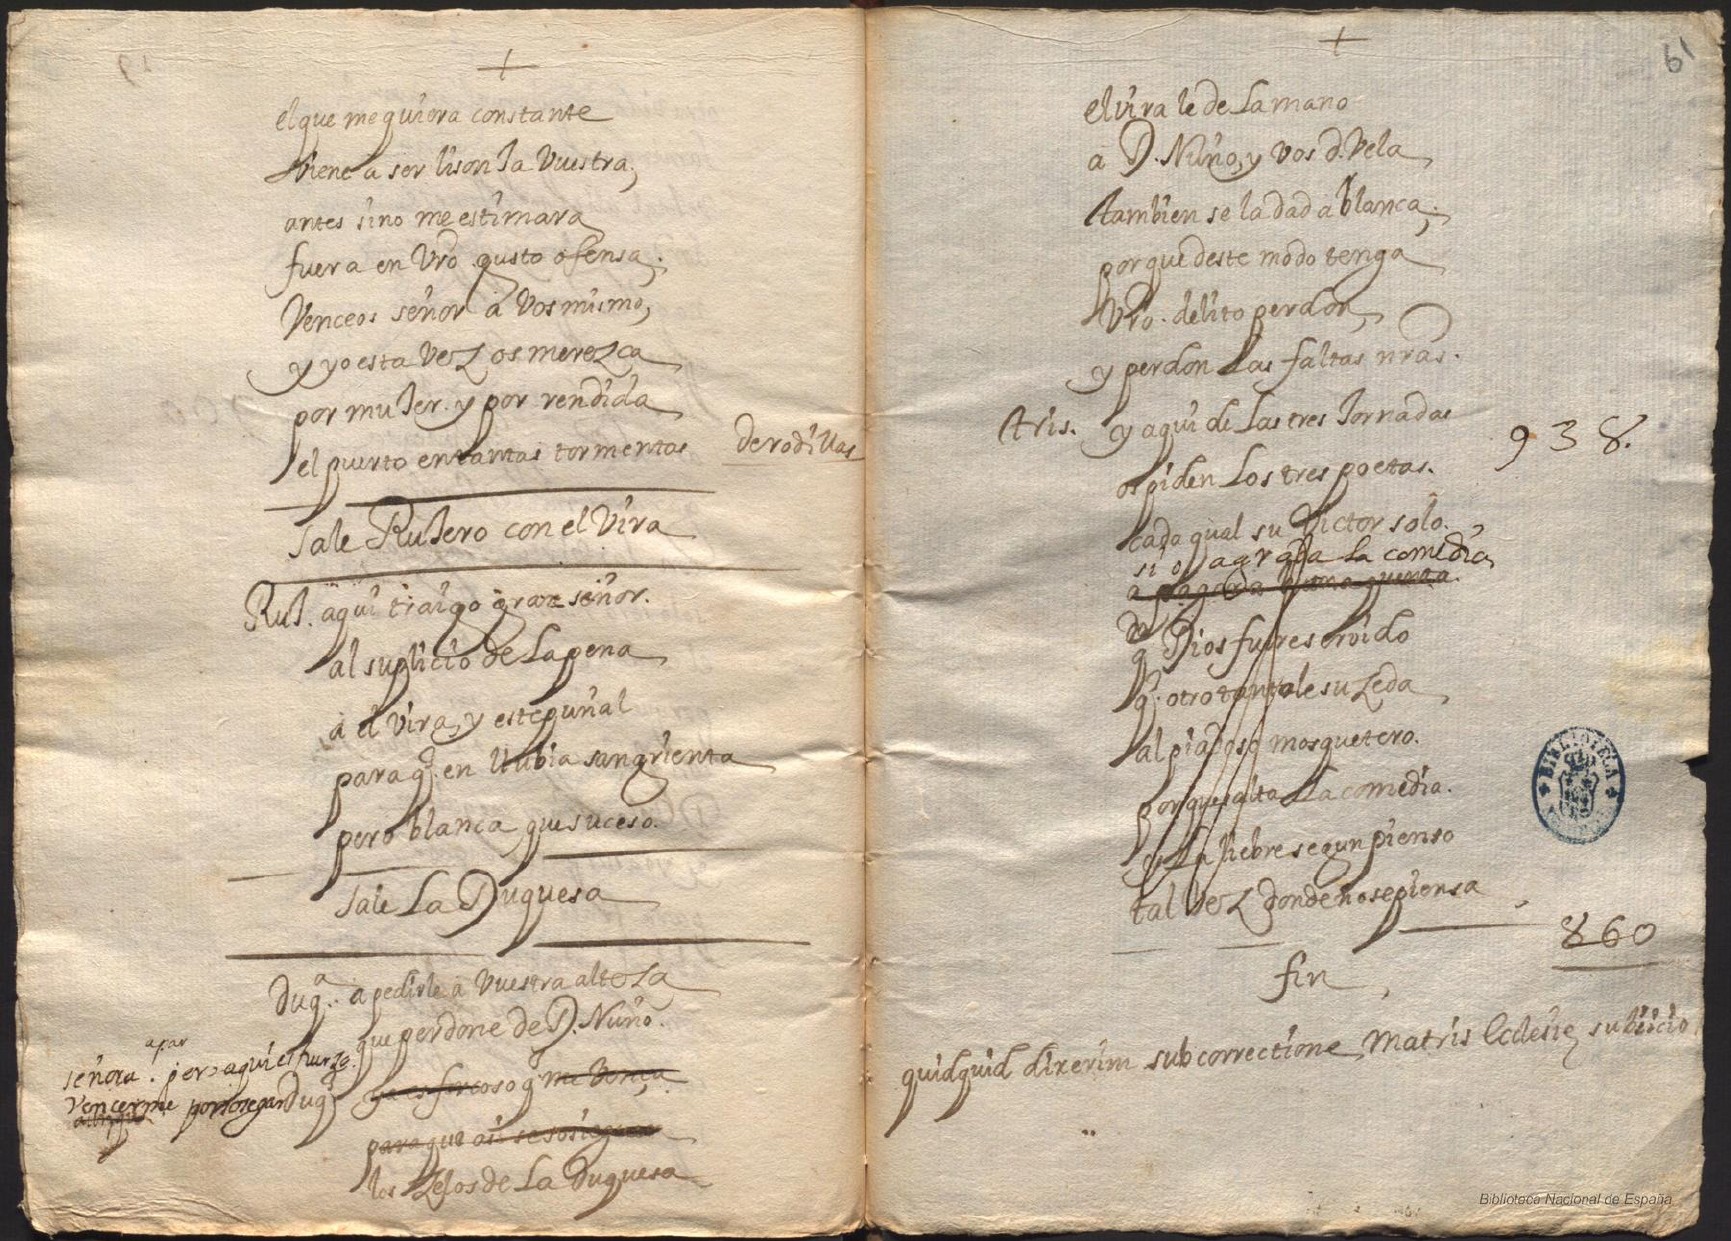 +
el que me quiera constante
viene a ser lisonJa Vuestra,
antes sino me estimara
fuera en Vro gusto ofensa.
Venceos señor a Vos mismo,
y yo esta VeZ os mereZca
por muJer. y por rendida
el puerto en tantas tormentas
de rodillas
Sale RuJero con elVira
RuJ. aqui traigo gran señor.
al suplicio de la pena
a elVira, y este puñal
para q. en
sangrienta
pero blanca, que suceso.
Sale La Duquesa
Duqa. a pedirle a Vuestra alteZa
que perdone de D. Nuño.
apar
señora. pero aqui es fuerza
Vencerme
Duq
ya es forcoso q me Vença
para que asi se sosieguen
los Zelos de La duquesa
+
61
elvira le de La mano
a D. Nuño, y vos d. Vela
tambien se la dad a blanca,
por que deste modo tenga
Vro. delito perdon,
y perdon Las faltas nras.
tris. y aqui de Las tres Jornadas
938.
os piden Los tres poetas.
cada qual su Victor solo.
si os agrada la comedia
q Dios fuere servido
q. otro tanto le suZeda
al piadoso mosquetero.
por que salta La comedia.
y La liebre segun pienso
tal VeZ donde no se piensa
860
fin
quidquid dixerim sub correctione Matris Eclesie subiicio
BIBLIOTECA
Biblioteca Nacional de España